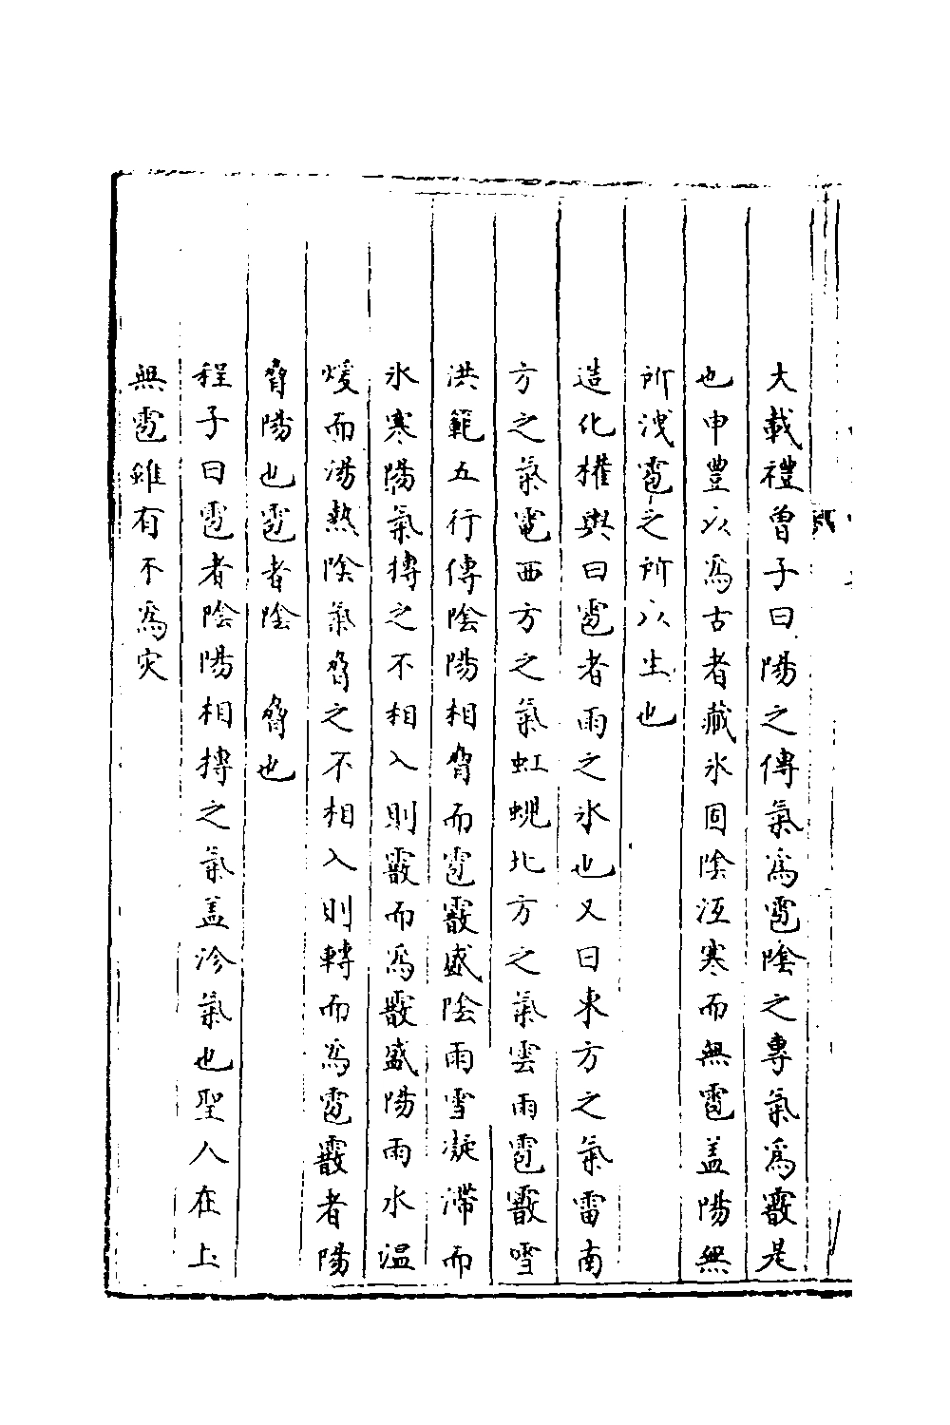 大載禮曽子曰陽之傳氣為雹陰之專氣為霰是
也申豐以為古者藏氷固陰沍寒而無雹盖陽無
所洩雹之所以生也
造化權輿曰雹者雨之氷也又曰東方之氣雷南
方之氣電西方之氣虹蜺北方之氣雲雨雹霰雪
洪範五行傳陰陽相脅而雹霰盛陰雨雪凝滯而
氷寒陽氣摶之不相入則霰而為霰盛陽雨水温
煖而湯熱陰氣脅之不相入則轉而為雹霰者陽
脅陽也雹者陰 脅也
程子曰雹者陰陽相摶之氣盖沴氣也聖人在上
無雹雖有不為灾